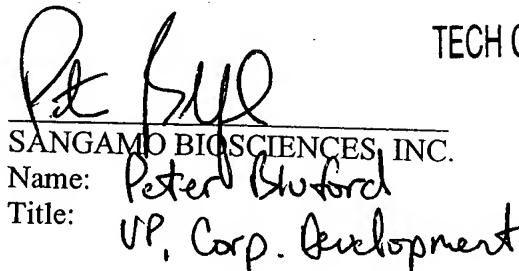 TECH
SANGAMO BIOSCIENCES, INC.
Name: Peter Bluford
Title: VP, Corp. Development